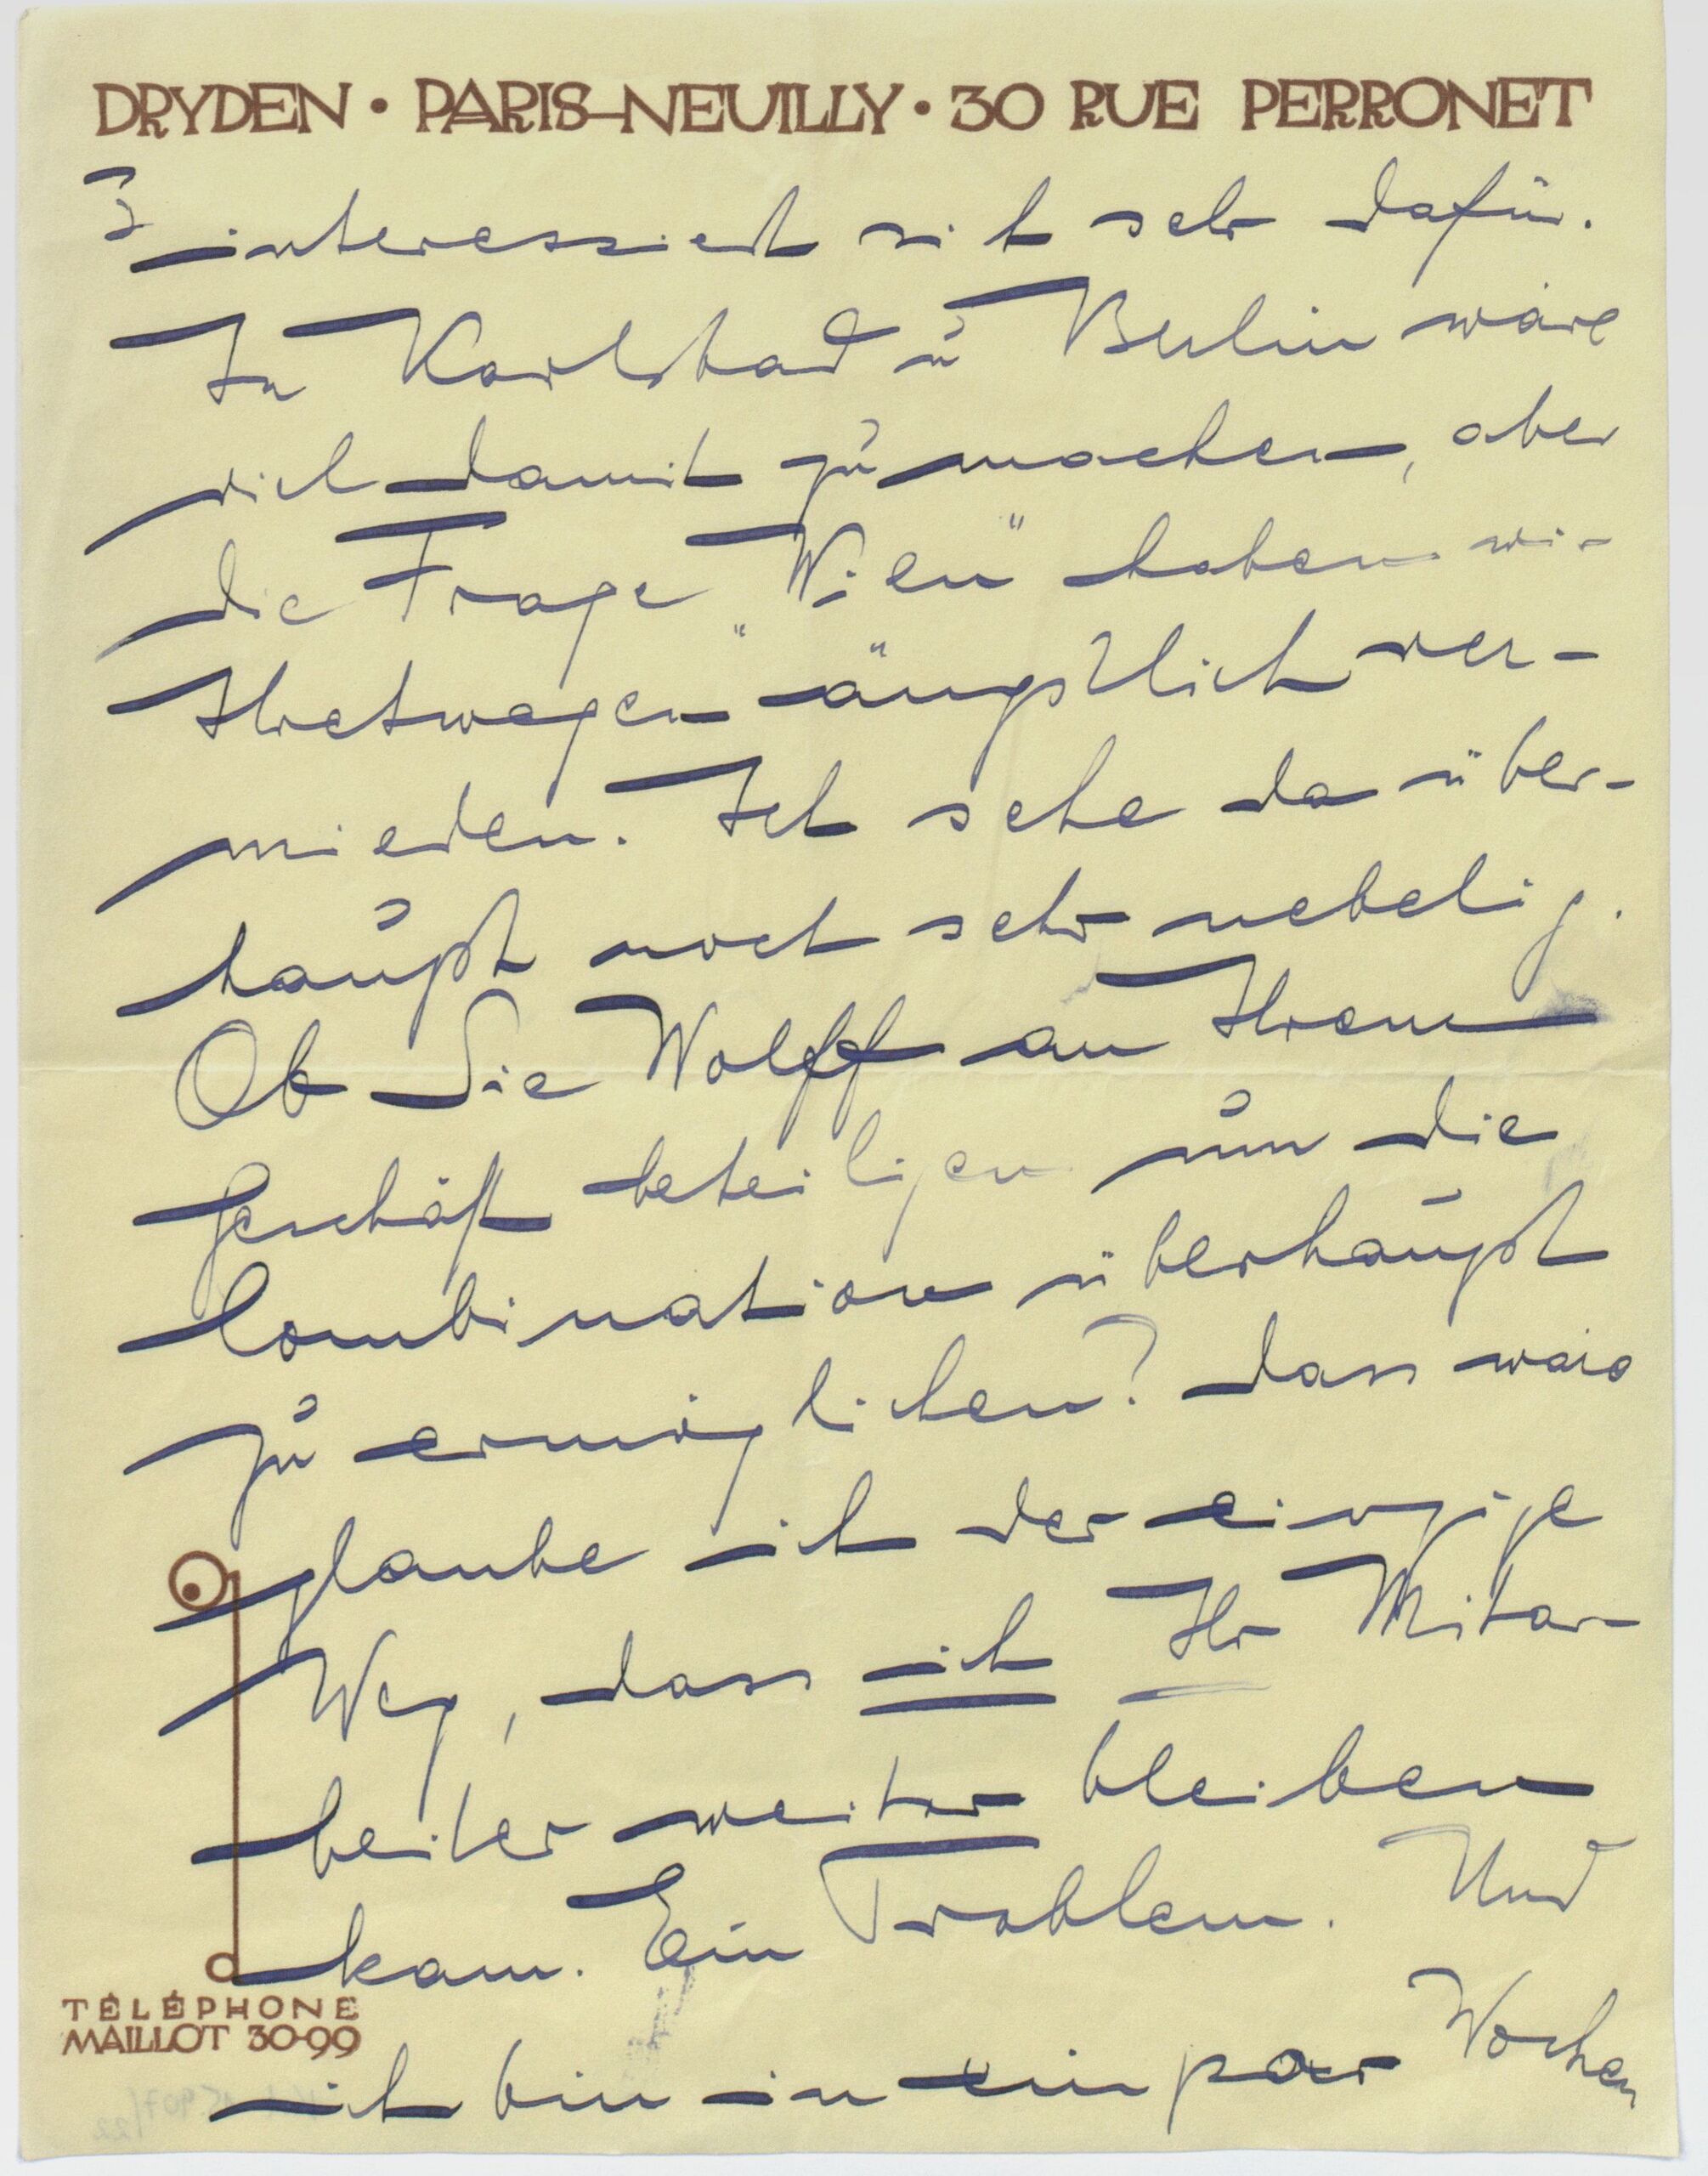 DRYDEN • PARIS–NEUILLY • 30 RUE PERRONET
3
interessiert sich sehr dafür.
In Karlsbad u Berlin wäre
viel damit zu machen, aber
die Frage "Wien" haben wir
Ihretwegen ängstlich ver-
mieden. Ich sehe da über-
haupt noch sehr nebelig.
Ob Sie Wolff an Ihrem
Geschäft beteiligen um die
Combination überhaupt
zu ermöglichen? dass wäre
glaube ich der einzige
Weg, dass ich Ihr Mitar-
beiter weiter bleiben
kann. Ein Problem. Und
ich bin in ein par Wochen
TÉLÉPHONE
MAILLOT 30-99